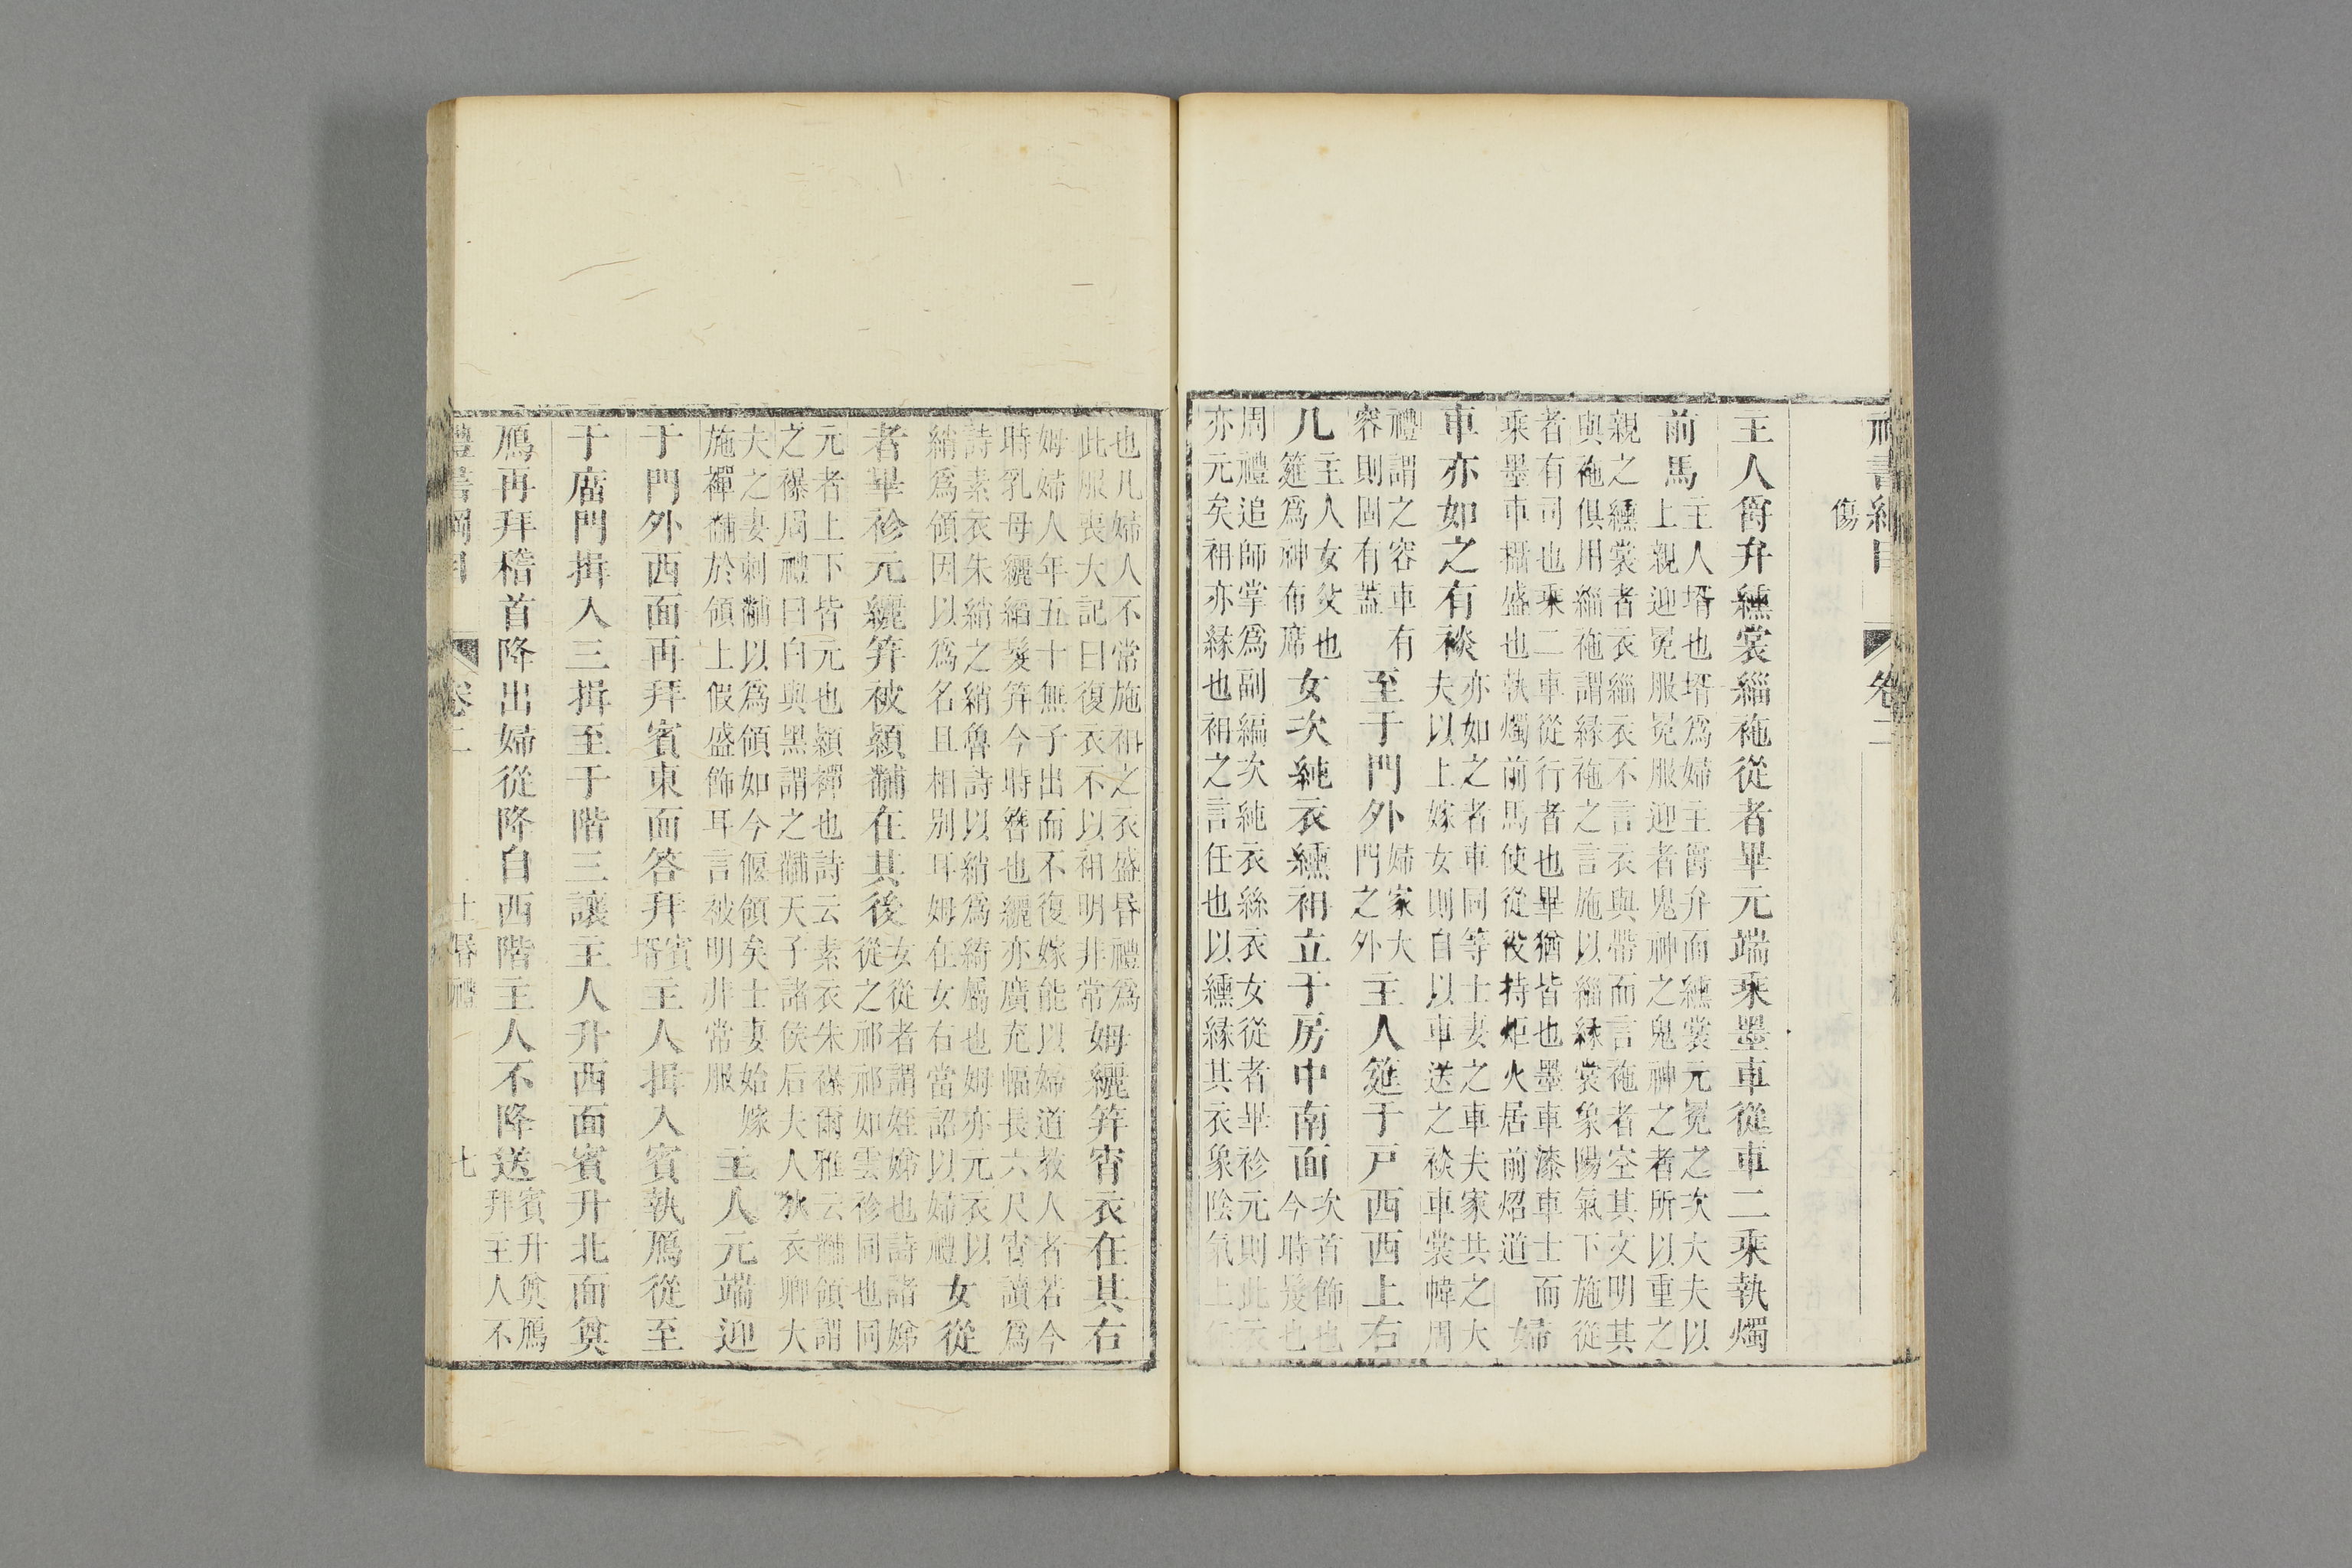 禮書綱目 卷二
傷
主人爵弁纁裳緇袘從者畢元端乘墨車從車二乘執燭
前馬主人壻也壻爲婦主爵弁而纁裳元冕之次大夫以上親迎冕服冕服迎者鬼神之鬼神之者所以重之
親之纁裳者衣緇衣不言衣與帶而言袘者空其文明其與袘俱用緇袘謂緣袘之言施以緇緣裳象陽氣下施從
者有司也乘二車從行者也畢猶皆也墨車漆車士而乘墨車攝盛也執燭前馬使從役持炬火居前炤道婦
車亦如之有裧亦如之者車同等士妻之車夫家共之大夫以上嫁女則自以車送之裧車裳幃周
禮謂之容車有容則固有蓋至于門外婦家大門之外主人筵于戸西西上右
几主人女父也筵爲神布席女次純衣纁袡立于房中南面次首飾也今時髲也
周禮追師掌爲副編次純衣絲衣女從者畢袗元則此衣亦元矣袡亦緣也袡之言任也以纁緣其衣象陰氣上
也凡婦人不常施袡之衣盛昏禮爲此服喪大記曰復衣不以袡明非常姆纚笄宵衣在其右
姆婦人年五十無子出而不復嫁能以婦道教人者若今時乳母纚縚髮笄今時簪也纚亦廣充幅長六尺宵讀爲
詩素衣朱綃之綃魯詩以綃爲綺屬也姆亦元衣以綃爲領因以爲名且相别耳姆在女右當詔以婦禮女從
者畢袗元纚笄被潁黼在其後女從者謂姪娣也詩諸娣從之祁祁如雲袗同也同
元者上下皆元也潁襌也詩云素衣朱襮爾雅云黼領謂之襮周禮曰白與黑謂之黼天子諸侯后夫人狄衣卿大
夫之妻刺黼以爲領如今偃領矣士妻始嫁施襌黼於領上假盛飾耳言被明非常服主人元端迎
于門外西面再拜賓東面答拜賓壻主人揖入賓執鴈從至
于廟門揖入三揖至于階三讓主人升西面賓升北面奠
鴈再拜稽首降出婦從降自西階主人不降送賓升奠鴈拜主人不
禮書綱目 卷二 士昏禮 七